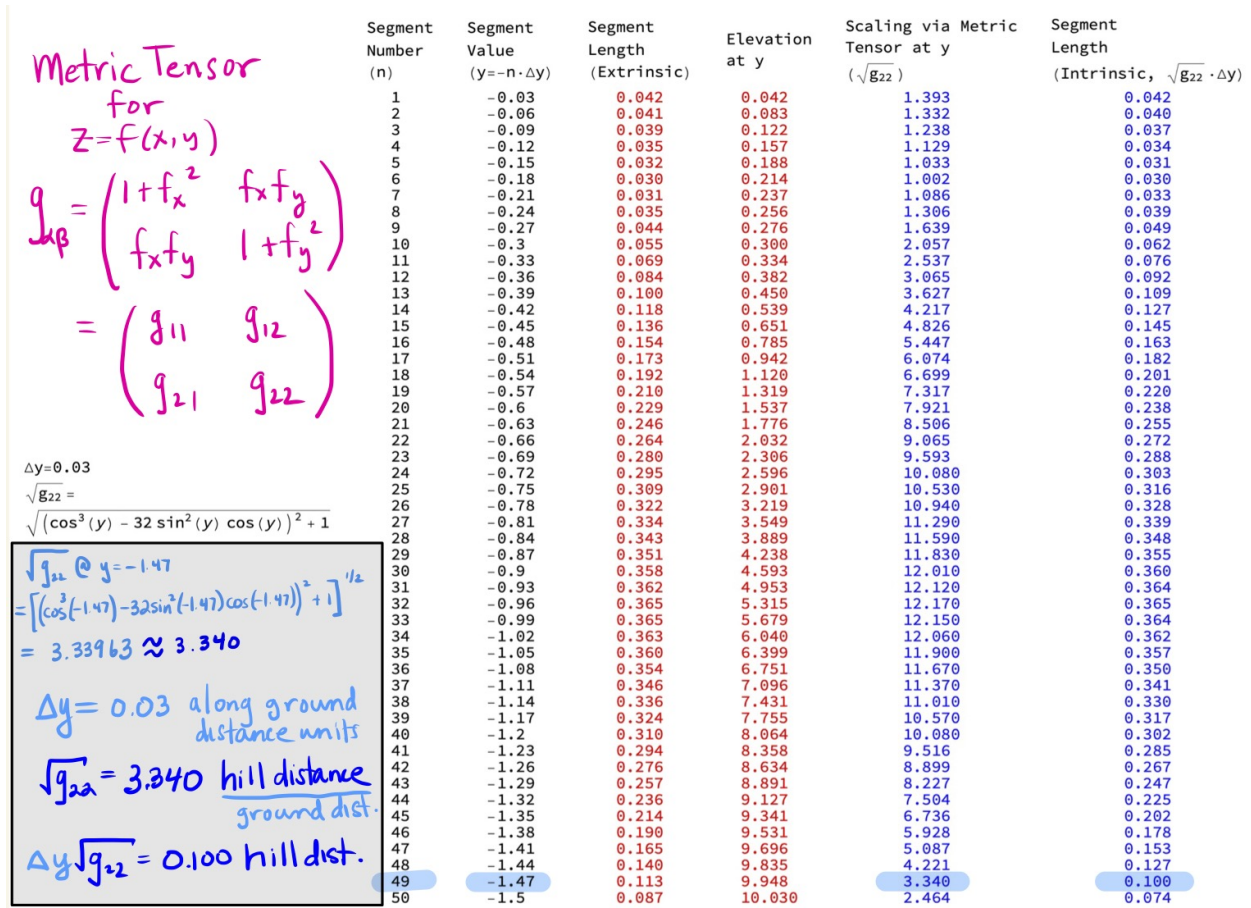 Metric Tensor
for
z=f(x,y)
g_αβ = (1+f_x² f_xf_y
f_xf_y 1+f_y²)
= (g₁₁ g₁₂
g₂₁ g₂₂)
Δy=0.03
√g₂₂ =
√(cos³(y) − 32 sin²(y) cos(y))² + 1
√g₂₂ @ y=-1.47
=[(cos³(-1.47)-32sin²(-1.47)cos(-1.47))² +1]^1/2
= 3.33963 ≈ 3.340
Δy= 0.03 along ground
distance units
√g₂₂ = 3.340 hill distance
ground dist.
Δy√g₂₂ = 0.100 hill dist.
Segment Number (n) Segment Value (y=−n·Δy) Segment Length (Extrinsic) Elevation at y Scaling via Metric Tensor at y (√g₂₂) Segment Length (Intrinsic, √g₂₂·Δy)
1 −0.03 0.042 0.042 1.393 0.042
2 −0.06 0.041 0.083 1.332 0.040
3 −0.09 0.039 0.122 1.238 0.037
4 −0.12 0.035 0.157 1.129 0.034
5 −0.15 0.032 0.188 1.033 0.031
6 −0.18 0.030 0.214 1.002 0.030
7 −0.21 0.031 0.237 1.086 0.033
8 −0.24 0.035 0.256 1.306 0.039
9 −0.27 0.044 0.276 1.639 0.049
10 −0.3 0.055 0.300 2.057 0.062
11 −0.33 0.069 0.334 2.537 0.076
12 −0.36 0.084 0.382 3.065 0.092
13 −0.39 0.100 0.450 3.627 0.109
14 −0.42 0.118 0.539 4.217 0.127
15 −0.45 0.136 0.651 4.826 0.145
16 −0.48 0.154 0.785 5.447 0.163
17 −0.51 0.173 0.942 6.074 0.182
18 −0.54 0.192 1.120 6.699 0.201
19 −0.57 0.210 1.319 7.317 0.220
20 −0.6 0.229 1.537 7.921 0.238
21 −0.63 0.246 1.776 8.506 0.255
22 −0.66 0.264 2.032 9.065 0.272
23 −0.69 0.280 2.306 9.593 0.288
24 −0.72 0.295 2.596 10.080 0.303
25 −0.75 0.309 2.901 10.530 0.316
26 −0.78 0.322 3.219 10.940 0.328
27 −0.81 0.334 3.549 11.290 0.339
28 −0.84 0.343 3.889 11.590 0.348
29 −0.87 0.351 4.238 11.830 0.355
30 −0.9 0.358 4.593 12.010 0.360
31 −0.93 0.362 4.953 12.120 0.364
32 −0.96 0.365 5.315 12.170 0.365
33 −0.99 0.365 5.679 12.150 0.364
34 −1.02 0.363 6.040 12.060 0.362
35 −1.05 0.360 6.399 11.900 0.357
36 −1.08 0.354 6.751 11.670 0.350
37 −1.11 0.346 7.096 11.370 0.341
38 −1.14 0.336 7.431 11.010 0.330
39 −1.17 0.324 7.755 10.570 0.317
40 −1.2 0.310 8.064 10.080 0.302
41 −1.23 0.294 8.358 9.516 0.285
42 −1.26 0.276 8.634 8.899 0.267
43 −1.29 0.257 8.891 8.227 0.247
44 −1.32 0.236 9.127 7.504 0.225
45 −1.35 0.214 9.341 6.736 0.202
46 −1.38 0.190 9.531 5.928 0.178
47 −1.41 0.165 9.696 5.087 0.153
48 −1.44 0.140 9.835 4.221 0.127
49 −1.47 0.113 9.948 3.340 0.100
50 −1.5 0.087 10.030 2.464 0.074